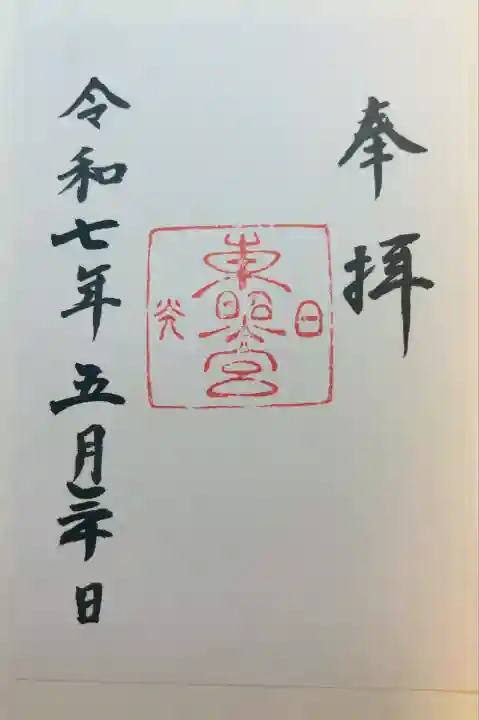 奉拝
日光
東照宮
令和七年五月日